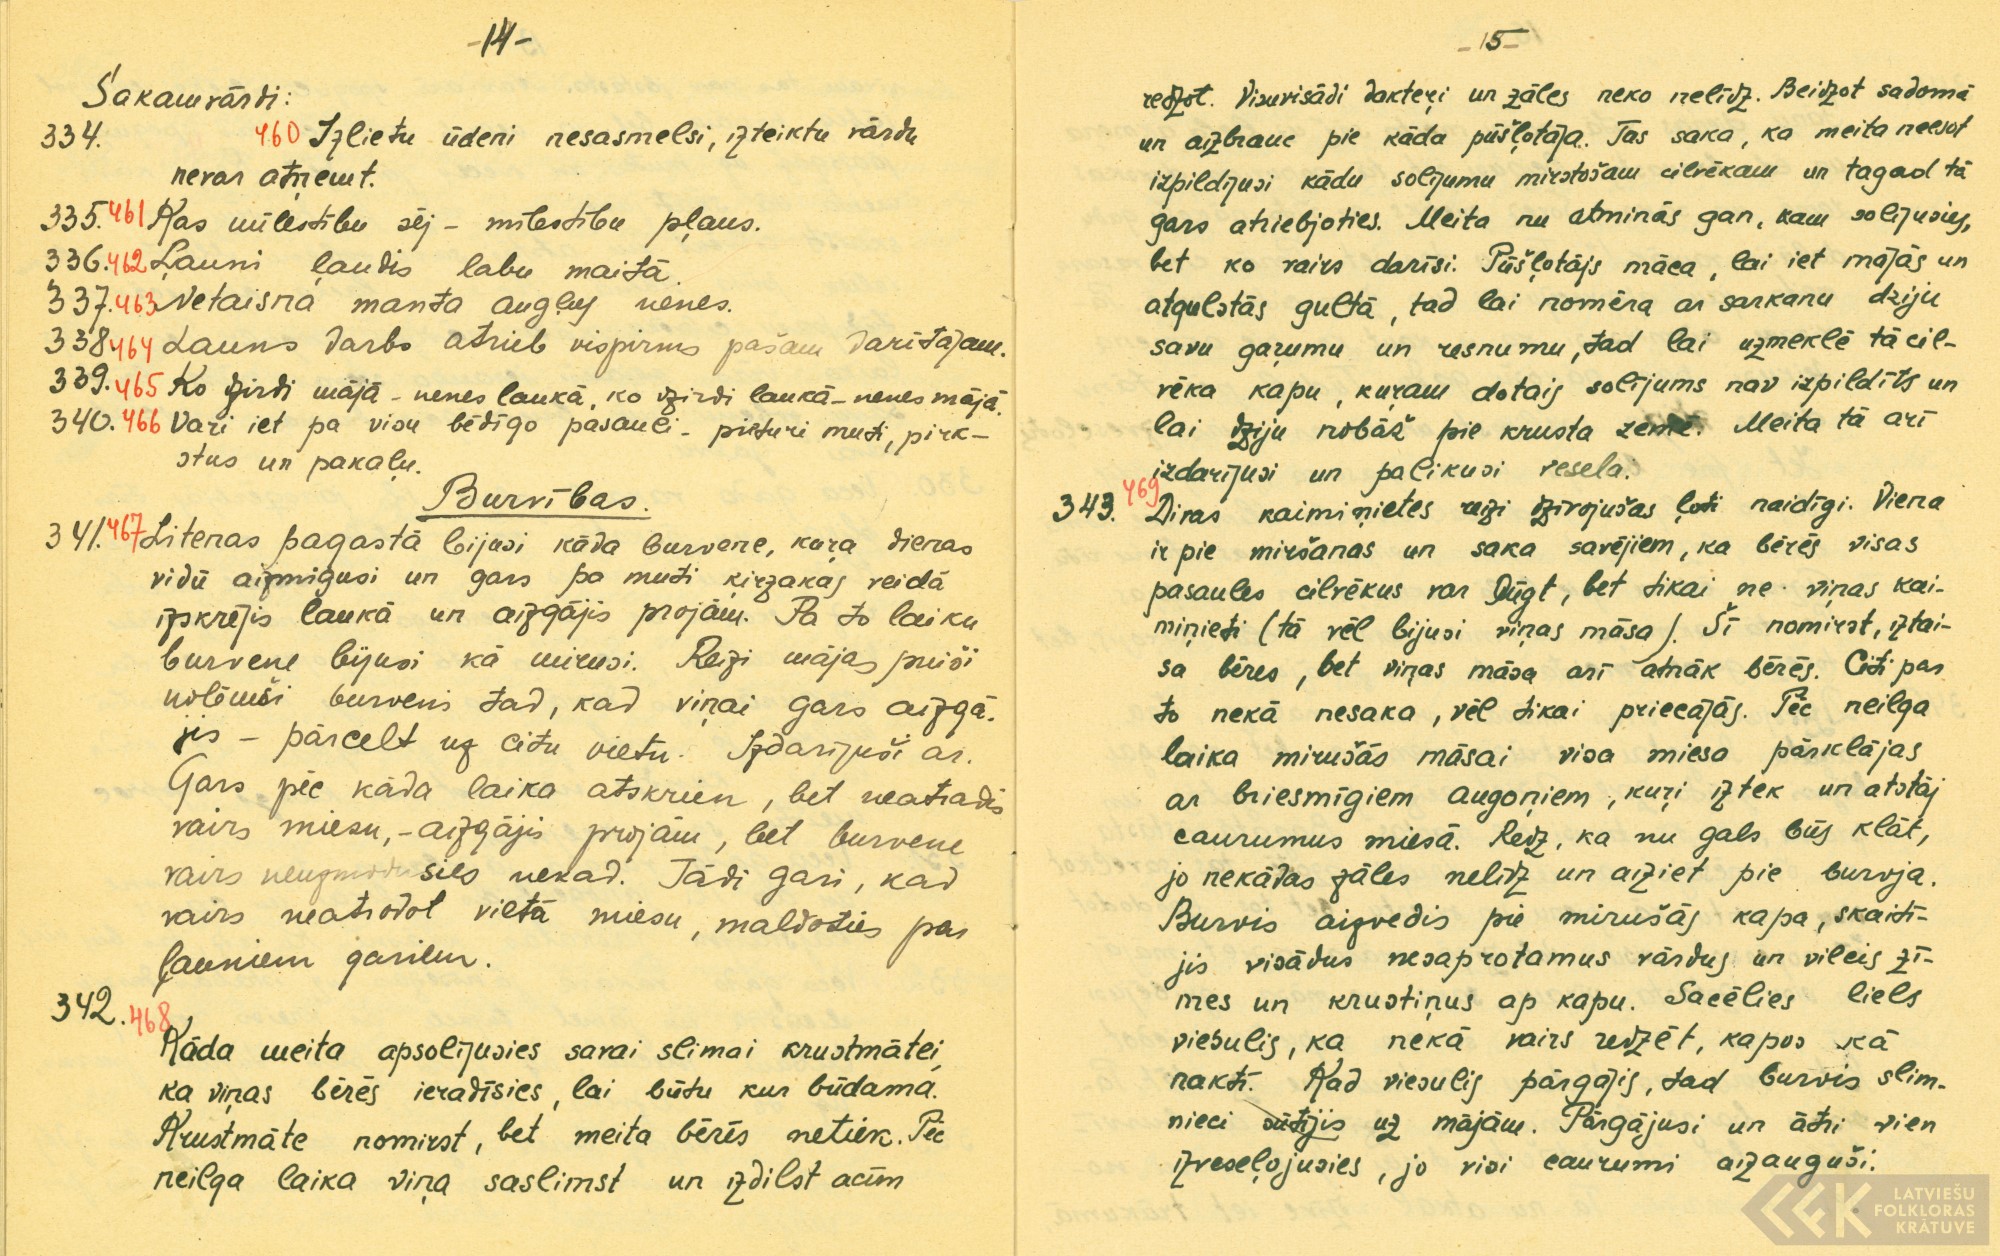 -14-
Sakamvārdi:
334. 460 Izlietu ūdeni nesasmelsi, izteiktu vārdu
nevar atņemt.
335. 461 Kas mīlestību sēj - mīlestību pļaus.
336. 462 Ļauni ļaudis labu maitā.
337. 463 Netaisna manta augļus nenes.
338 464 Ļauns darbs atrieb vispirms pašam darītājam.
339. 465 Ko dzirdi mājā - nenes laukā, ko dzirdi laukā - nenes mājā.
340. 466 Vari iet pa visu bēdīgo pasauli - pieturi muti, pirk-
stus un pakaļu.
Burvības.
341. 467 Litenas pagastā bijusi kāda burvene, kuŗa dienas
vidū aizmigusi un gars pa muti ķirzakas veidā
izskrējis laukā un aizgājis projām. Pa to laiku
burvene bijusi kā mirusi. Reizi mājas puiši
nolēmuši burveni tad, kad viņai gars aizgā-
jis - pārcelt uz citu vietu. Izdarījuši ar.
Gars pēc kāda laika atskrien, bet neatradis
vairs miesu, - aizgājis projām, bet burvene
vairs neuzmodusies nekad. Tādi gari, kad
vairs neatrodot vietā miesu, maldoties par
ļauniem gariem.
342. 468
Kāda meita apsolījusies savai slimai krustmātei,
ka viņas bērēs ieradīsies, lai būtu kur būdama.
Krustmāte nomirst, bet meita bērēs netiek. Pēc
neilga laika viņa saslimst un izdilst acīm
-15-
redzot. Visvisādi dakteŗi un zāles neko nelīdz. Beidzot sadomā
un aizbrauc pie kāda pūšļotāja. Tas saka, ka meita neesot
izpildījusi kādu solījumu mirstošam cilvēkam un tagad tā
gars atriebjoties. Meita nu atminās gan, kam solījusies,
bet ko vairs darīsi. Pūšļotājs māca, lai iet mājās un
atgulstās gultā, tad lai nomēra ar sarkanu dziju
savu gaŗumu un resnumu, tad lai uzmeklē tā cil-
vēka kapu, kuŗam dotais solījums nav izpildīts un
lai dziju nobāž pie krusta zemē. Meita tā arī
izdarījusi un palikusi vesela.
343. 469 Divas kaimiņietes reizi dzīvojušas ļoti naidīgi. Viena
ir pie miršanas un saka savējiem, ka bērēs visas
pasaules cilvēkus var lūgt, bet tikai ne viņas kai-
miņieti (tā vēl bijusi viņas māsa). Šī nomirst, iztai-
sa bēres, bet viņas māsa arī atnāk bērēs. Citi par
to nekā nesaka, vēl tikai priecājās. Pēc neilga
laika mirušās māsai visa miesa pārklājas
ar briesmīgiem augoņiem, kuŗi iztek un atstāj
caurumus miesā. Redz, ka nu gals būs klāt,
jo nekādas zāles nelīdz un aiziet pie burvja.
Burvis aizvedis pie mirušās kapa, skaitī-
jis visādus nesaprotamus vārdus un vilcis zī-
mes un krustiņus ap kapu. Sacēlies liels
viesulis, ka nekā vairs redzēt, kapos kā
naktī. Kad viesulis pārgājis, tad burvis slim-
nieci sūtījis uz mājām. Pārgājusi un ātri vien
izveseļojusies, jo visi caurumi aizauguši.
LATVIEŠU
FOLKLORAS
KRĀTUVE